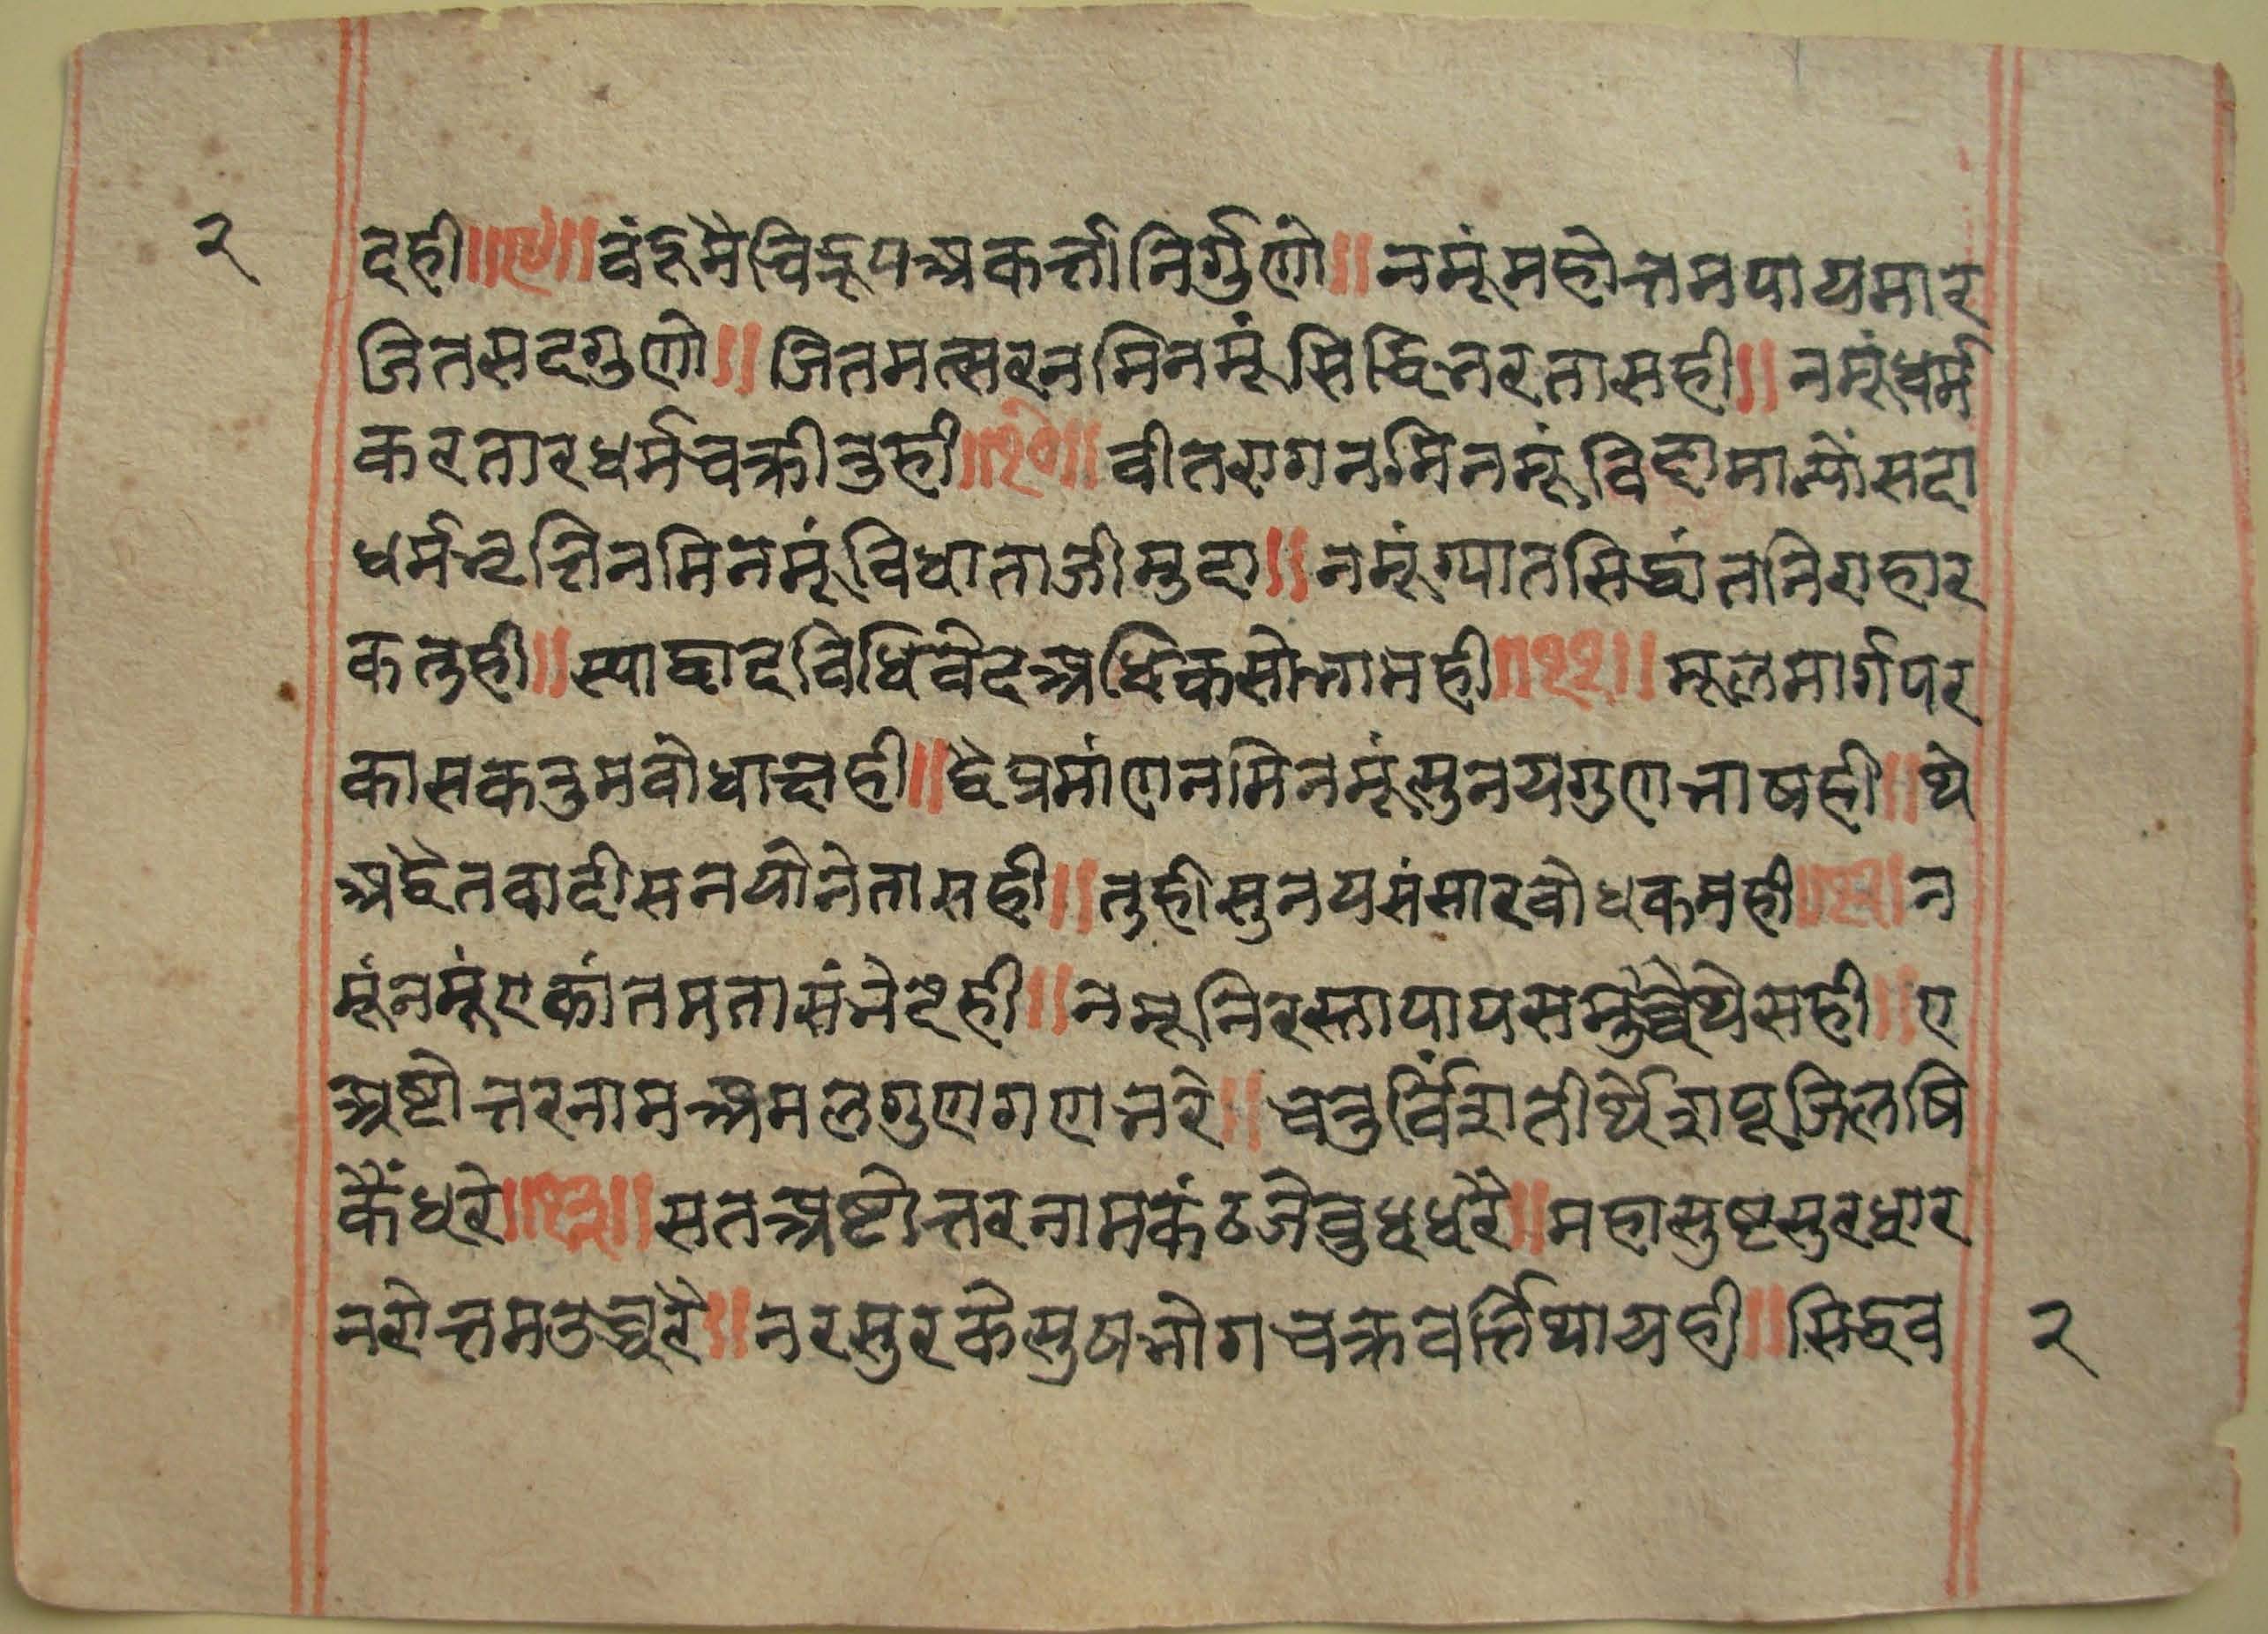 २ दही॥९॥वंदूमैचिद्रूपअकर्त्तानिर्गुणो॥नमूंमहोत्तमपायमार
जितसदगुणो॥जितमत्सरनमिनमूंसिद्धिनरतासही॥नमूंधर्म
करतारधर्मचक्रीतुही॥१०॥वीतरागनमिनमूंविद्यामान्योंसदा
धर्मनमिनमूंविधाताजीमुदा॥नमूंग्यातसिद्धांतनिराहार
कतुही॥स्याद्वादविधिवेदअधिकसोभामही॥११॥मूलमार्गपर
कासकतुमबोधादाही॥द्वैप्रमांणनमिनमूंसुनयगुणभाषही॥थे
अद्वैतवादीसनयोनेतासही॥तुहीसुनयसंसारबोधकमही॥१२॥न
मूंनमूंएकांतमतासंभेटूही॥नमूनिरस्तापायसमुच्चैथेसही॥ए
अष्टोत्तरनामअमलगुणगणभरे॥चतुर्विंशतीर्थेशपूजिलषि
कैंधरे॥१३॥सतअष्टोत्तरनामकंठजेबुधधरै॥महासुष्टसुरधार
नरोत्तमउच्चरै॥नरसुरकेसुषभोगचक्रवर्त्तिथायही॥सिद्धव २